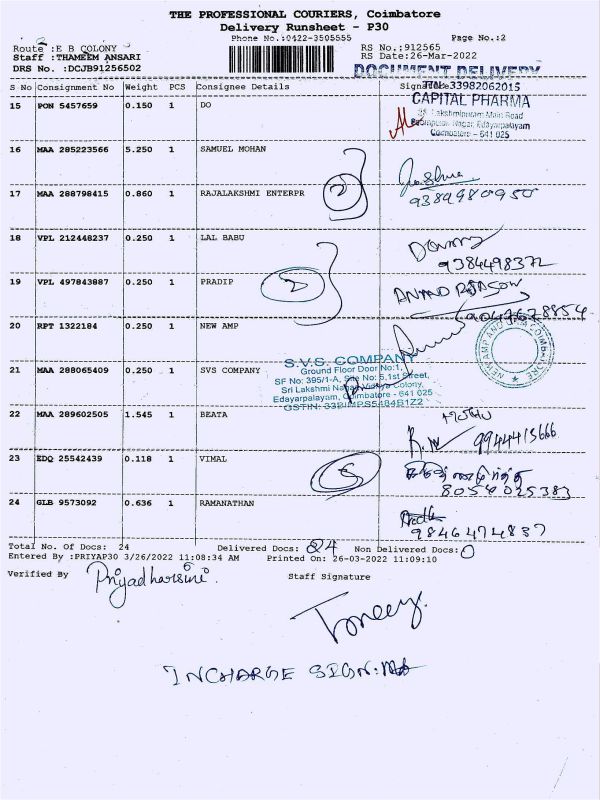 THE PROFESSIONAL COURIERS, Coimbatore
Delivery Runsheet - P30
Phone No.:0422-3505555 Page No.:2
Route :E B COLONY RS No.:912565
Staff :THAMEEM ANSARI RS Date:26-Mar-2022
DRS No. :DCJB91256502 DOCUMENT DELIVERY
S No Consignment No Weight PCS Consignee Details Signature
TIN:33982062015
15 PON 5457659 0.150 1 DO CAPITAL PHARMA
Lakshmipuram Main Road
Nagar, Edayarpalayam
Coimbatore - 641 025
16 MAA 285223566 5.250 1 SAMUEL MOHAN
Joshua
17 MAA 288798415 0.860 1 RAJALAKSHMI ENTERPR 2 9389980950
18 VPL 212448237 0.250 1 LAL BABU
9384498372
19 VPL 497843887 0.250 1 PRADIP 2
9047678854
20 RPT 1322184 0.250 1 NEW AMP
S.V.S. COMPANY
21 MAA 288065409 0.250 1 SVS COMPANY Ground Floor Door No:1,
SF No: 395/1-A, Site No: 5,1st Street,
Sri Lakshmi Nagar Vidhya Colony,
Edayarpalayam, Coimbatore - 641 025
22 MAA 289602505 1.545 1 BEATA
9944415666
23 EDQ 25542439 0.118 1 VIMAL 5
8054025383
24 GLB 9573092 0.636 1 RAMANATHAN
9846474837
Total No. Of Docs: 24 Delivered Docs: 24 Non Delivered Docs: 0
Entered By :PRIYAP30 3/26/2022 11:08:34 AM Printed On: 26-03-2022 11:09:10
Verified By Priyadharsini. Staff Signature
INCHARGE SIGN: